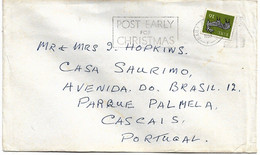 POST EARLY
FOR
CHRISTMAS
MR & MRS I. HOPKINS.
CASA SAURIMO,
AVENIDA. DO. BRASIL. 12.
PARQUE PALMELA,
CASCAIS.
PORTUGAL.